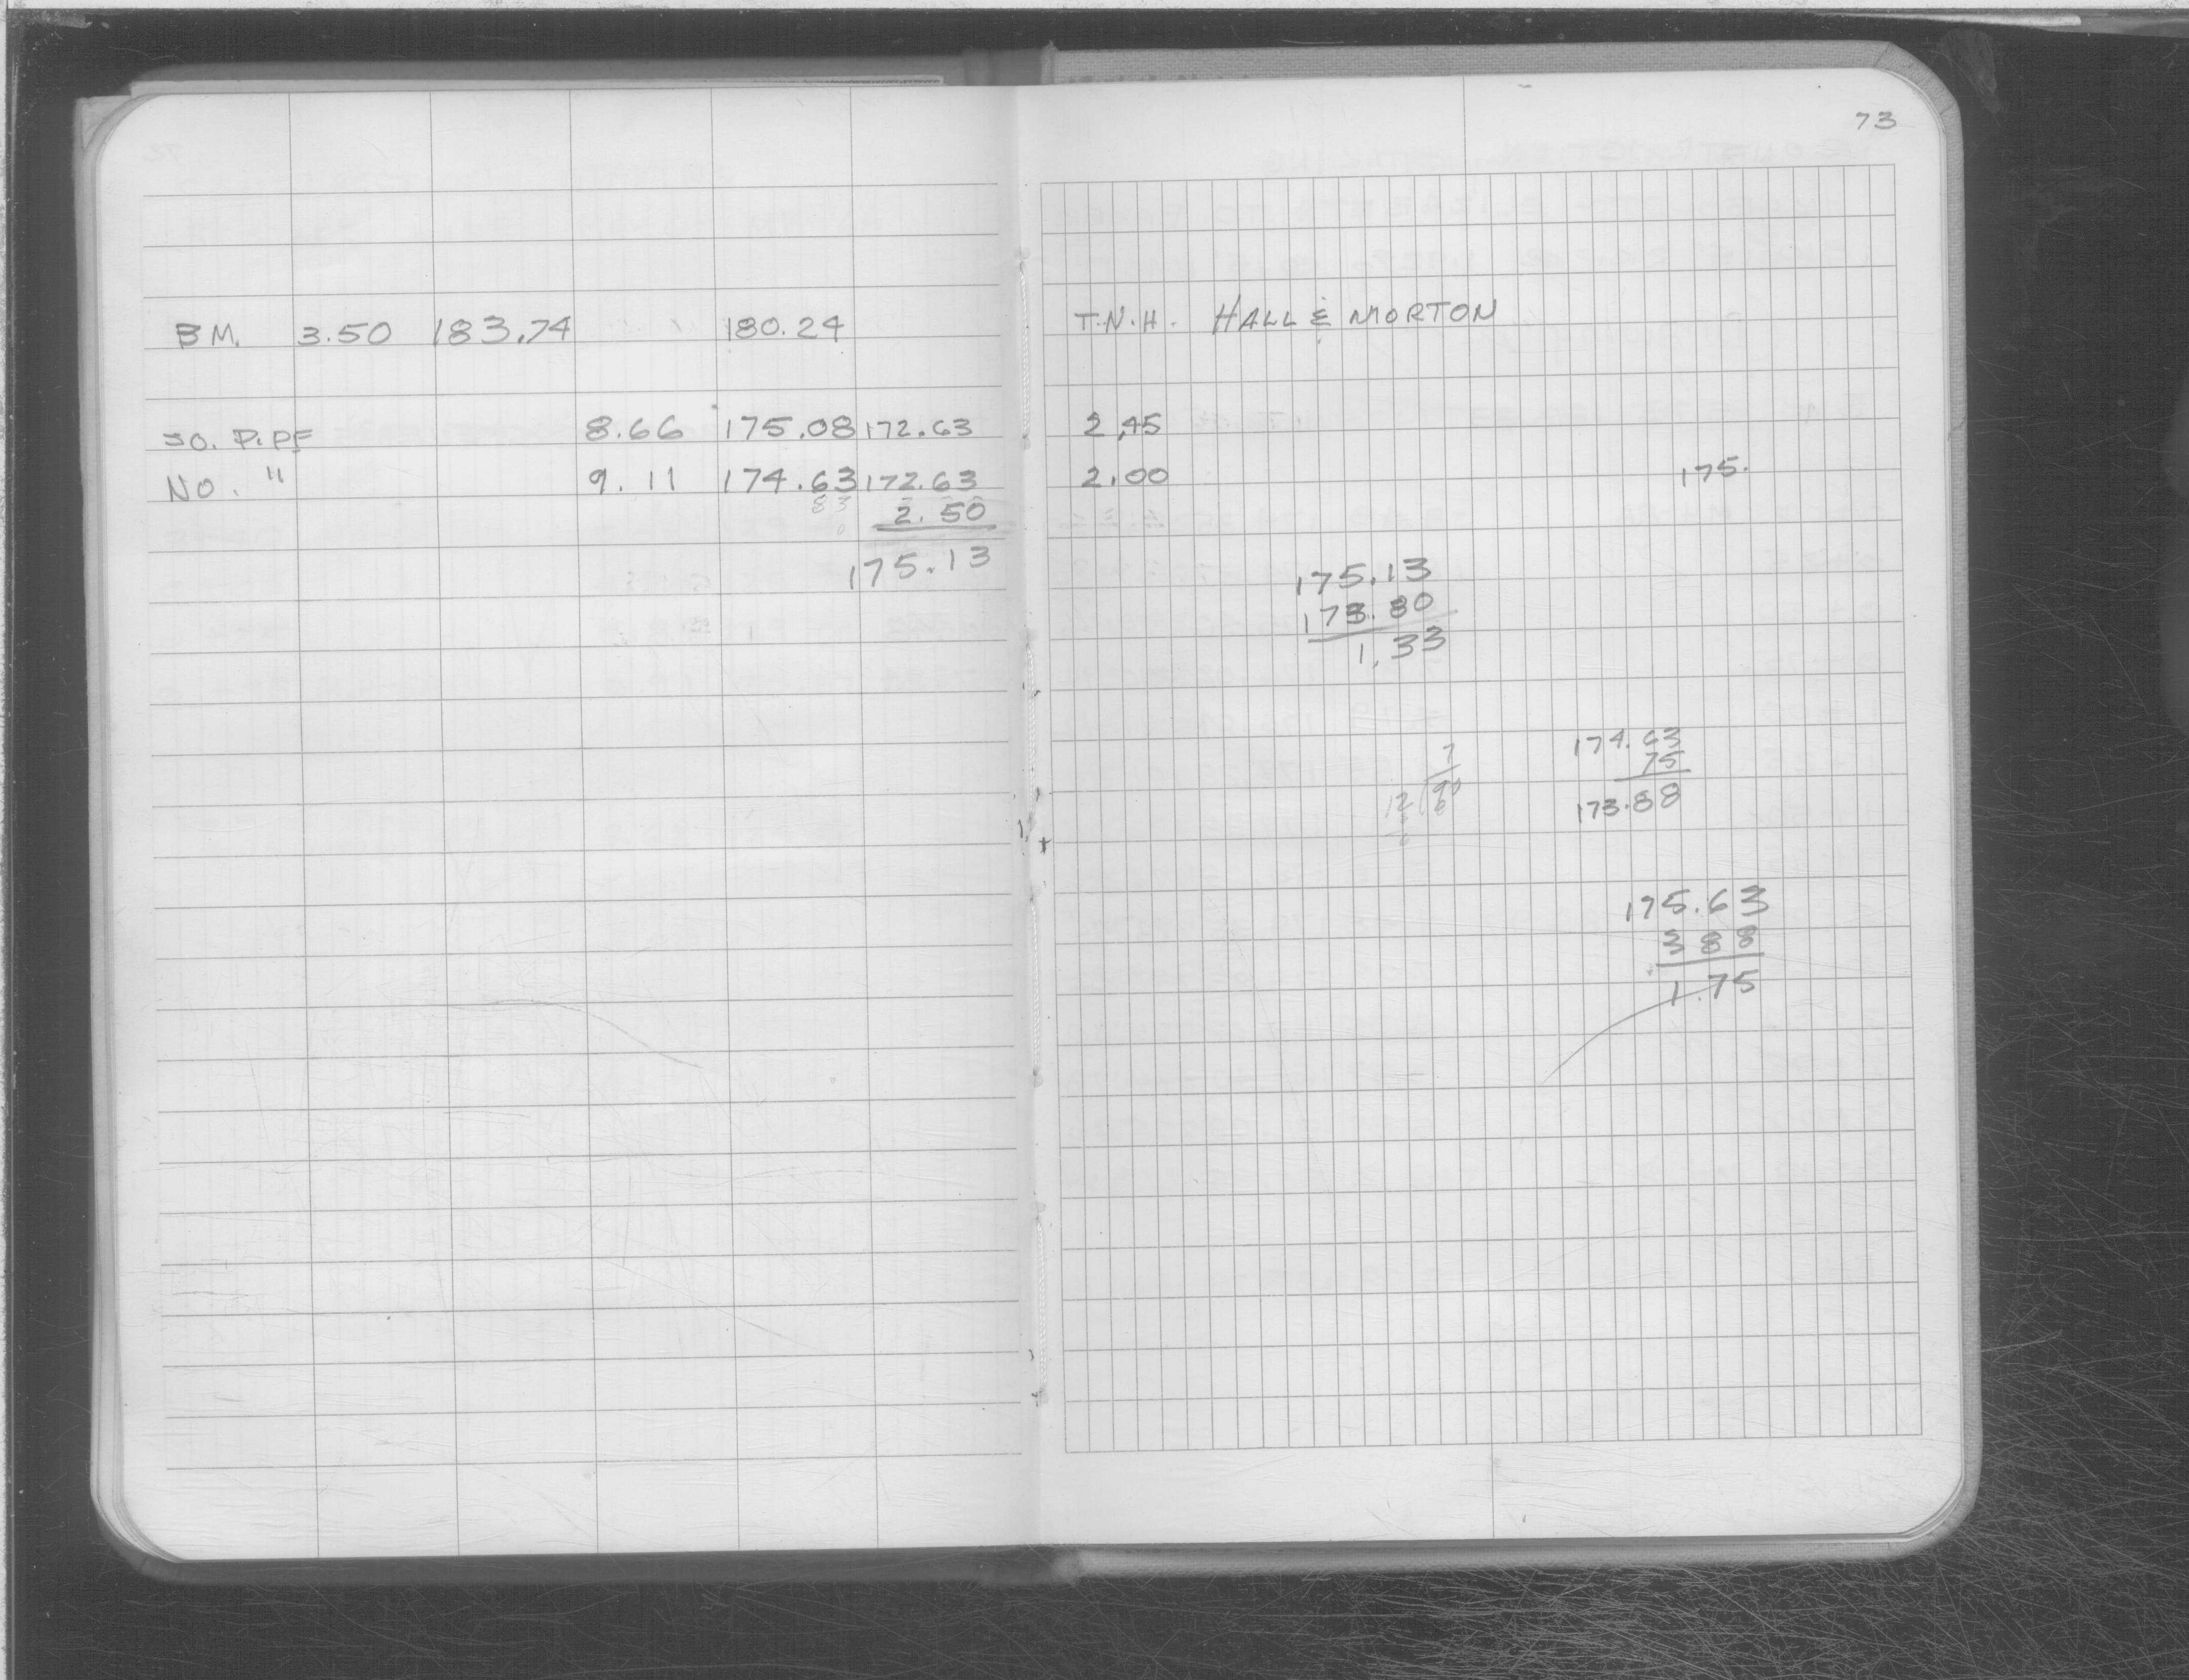 73
BM. 3.50 183.74 180.24 T.N.H. HALL & MORTON
SO. PIPE 8.66 175.08 172.63 2.45
NO. " 9.11 174.63 172.63 2.00 175.
2.50
175.13
175.13
173.80
1.33
7
12
174.63
75
173.88
175.63
3 88
1.75